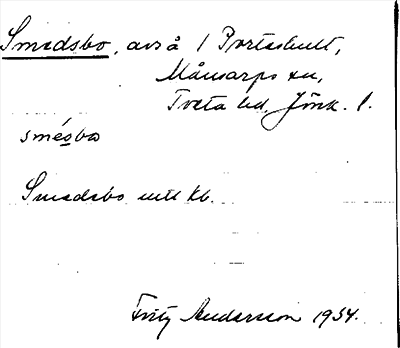 Smedsbo, avs å 1 Portashult,
Månsarps sn,
Tveta hd. Jönk. l.
smésbo
Smedsbo enl kb.
Fritz Andersson 1934.